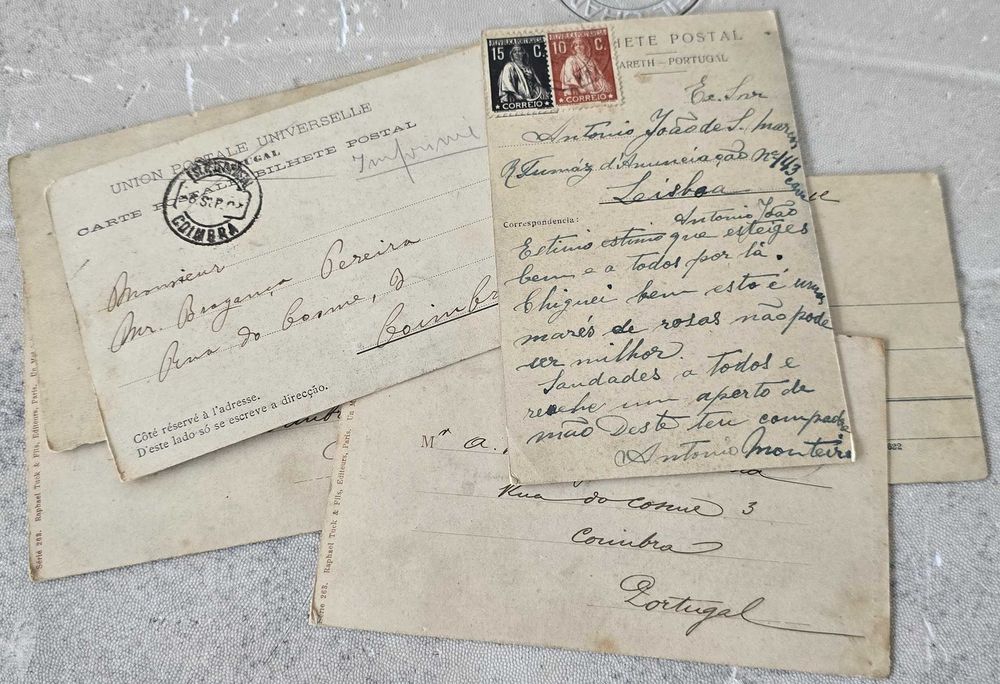 UNION POSTALE UNIVERSELLE
UGAL
CARTE BILHETE POSTAL
COIMBRA
Monsieur
Mr. Bragança Pereira
Rua do Cosme, 3
Coimbr
Côté réservé à l'adresse.
D'este lado só se escreve a direcção.
REPUBLICA PORTUGUESA
15 C.
CORREIO
REPUBLICA PORTUGUESA
10 C.
CORREIO
HETE POSTAL
ARETH - PORTUGAL
Antonio João de S. Marin
R Tumáz d'Anunciação Nº 143
Lisboa
Correspondencia:
Antonio João
Estimo estimo que esteiges
bem e a todos por lá.
Chiguei bem esto é uma
marés de rosas não pode
ser milhor.
Saudades a todos e
reсebe um aperto de
mão Deste teu compadre
Antonio Monteir
Série 263. Raphael Tuck & Fils, Editeurs, Paris. Un
Mr a.
Rua do Cosme 3
Coimbra
Portugal
Série 263. Raphael Tuck & Fils, Editeurs, Paris. Un
622